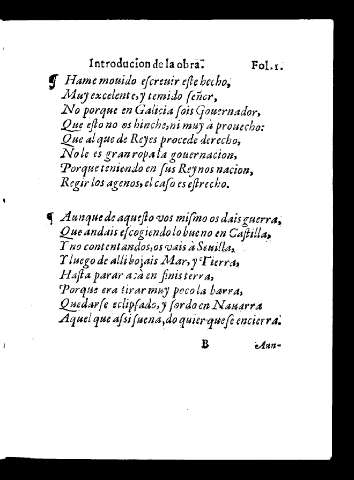 Introducion de la obra. Fol. 1.
¶ Hame mouido escreuir este hecho,
Muy excelente, y temido señor,
No porque en Galicia sois Gouernador,
Que esto no os hinche, ni muy à prouecho:
Que al que de Reyes procede derecho,
No le es gran ropa la gouernacion,
Porque teniendo en sus Reynos nacion,
Regir los agenos, el caso es estrecho.
¶ Aunque de aquesto vos mismo os dais guerra,
Que andais escogiendo lo bueno en Castilla,
Y no contentandos, os vais à Seuilla,
Y luego de alli bojais Mar, y Tierra,
Hasta parar acà en finis terra,
Porque era tirar muy poco la barra,
Quedarse eclipsado, y sordo en Nauarra
Aquel que assi suena, do quier que se encierra.
B Aun-